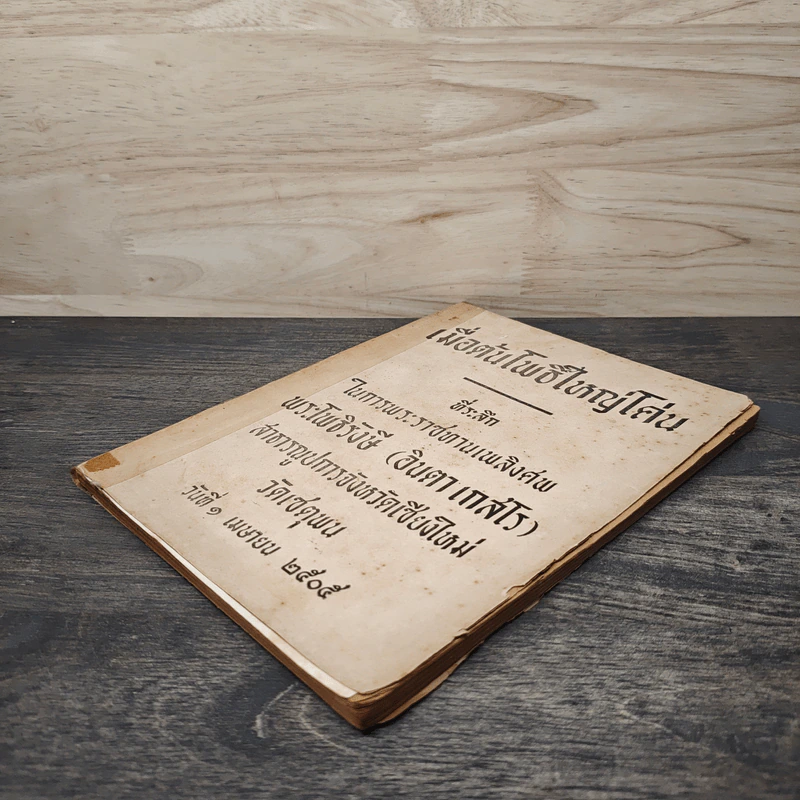 เมื่อต้นโพธิ์ใหญ่โค่น
ที่ระลึก
ในการพระราชทานเพลิงศพ
พระโพธิรังษี (อินตา เกสโร)
สาธารณูปการจังหวัดเชียงใหม่
วัดเชตุพน
วันที่ ๑ เมษายน ๒๕๐๕